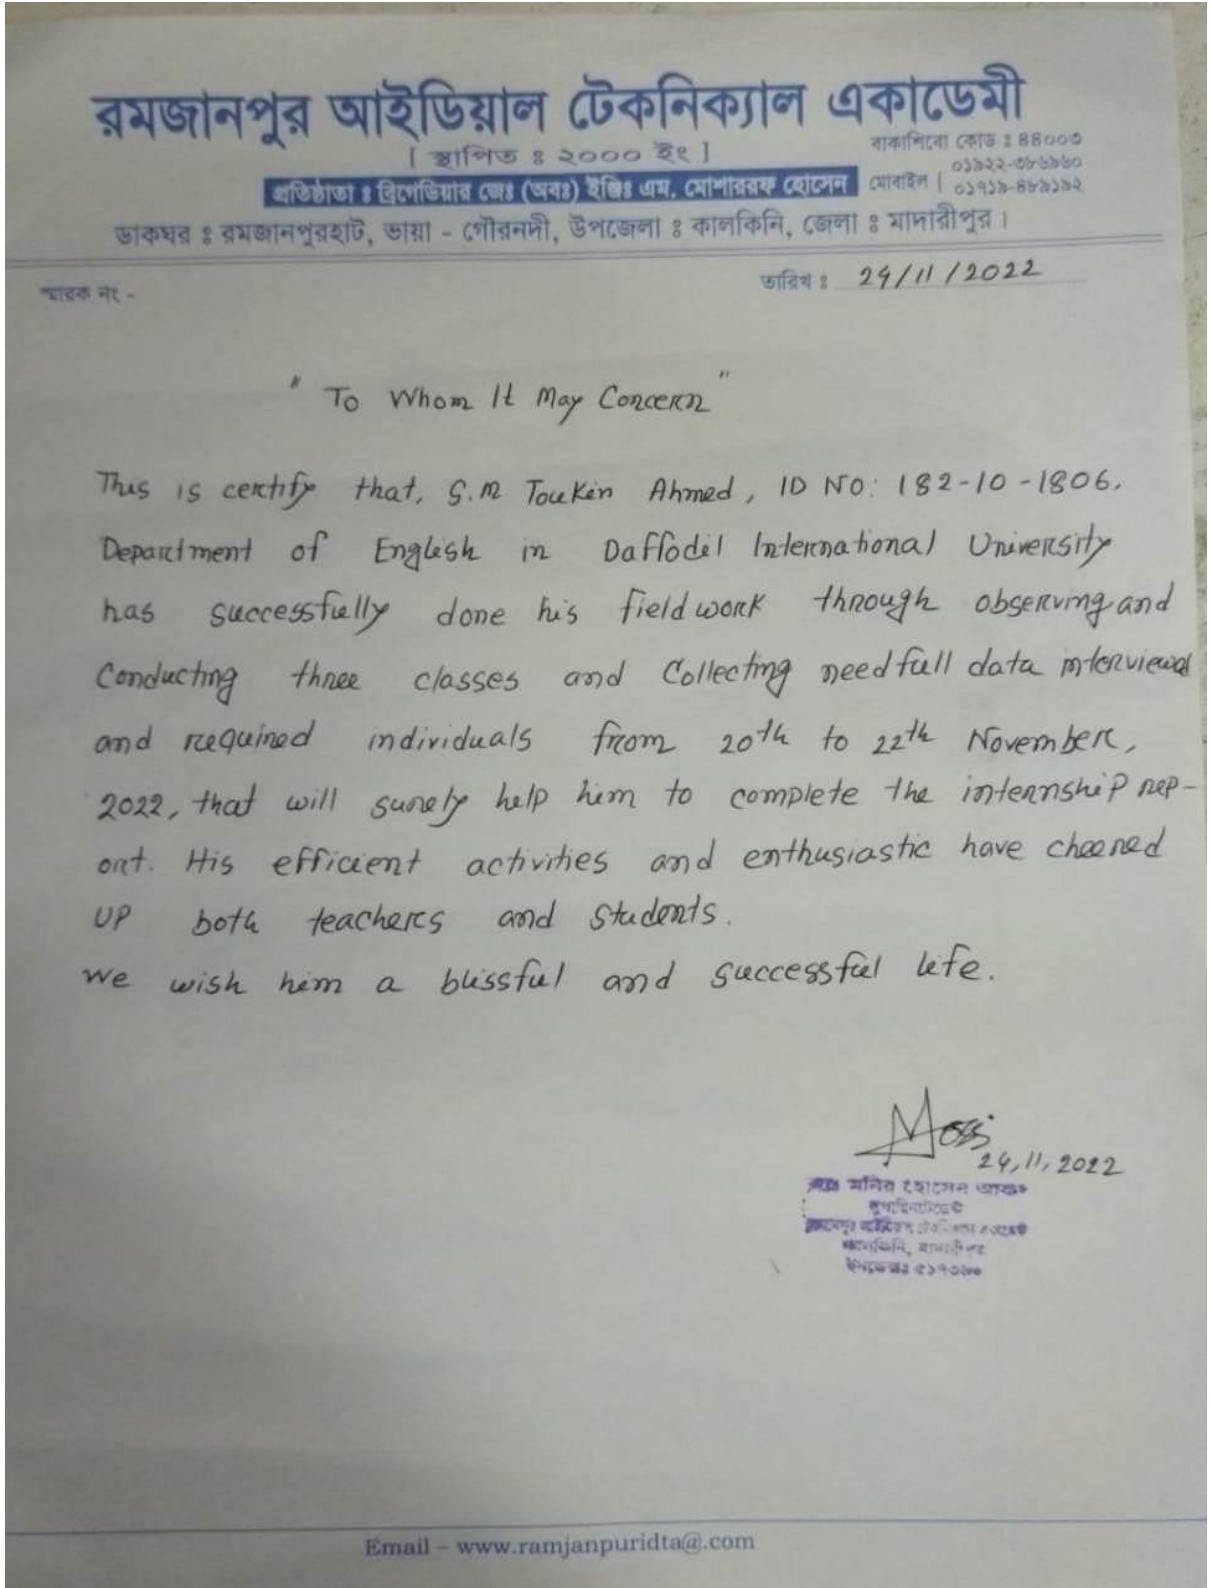 রমজানপুর আইডিয়াল টেকনিক্যাল একাডেমী
[ স্থাপিত ঃ ২০০০ ইং ]
বাকাশিবো কোড ঃ ৪৪০০৩
প্রতিষ্ঠাতা ঃ ব্রিগেডিয়ার জেঃ (অবঃ) ইঞ্জিঃ এম. মোশাররফ হোসেন
মোবাইল | ০১৯২২-৩৮৬৯৬০
০১৭১৯-৪৮৯১৯২
ডাকঘর ঃ রমজানপুরহাট, ভায়া - গৌরনদী, উপজেলা ঃ কালকিনি, জেলা ঃ মাদারীপুর।
স্মারক নং -
তারিখ ঃ 24/11/2022
" To Whom It May Concern "
This is certify that, S.M Toukin Ahmed, ID NO: 182-10-1806.
Department of English in Daffodil International University
has successfully done his fieldwork through observing and
Conducting three classes and Collecting needfull data interviewed
and required individuals from 20th to 22th November,
2022, that will surely help him to complete the internship rep-
ort. His efficient activities and enthusiastic have cheered
UP both teachers and students.
We wish him a blissful and successful life.
24,11,2022
মনির হোসেন
কালকিনি, মাদারীপুর
Email – www.ramjanpuridta@.com